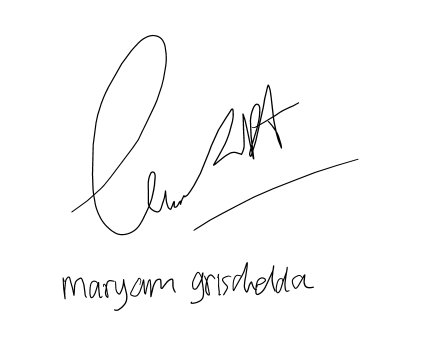 maryam grischelda